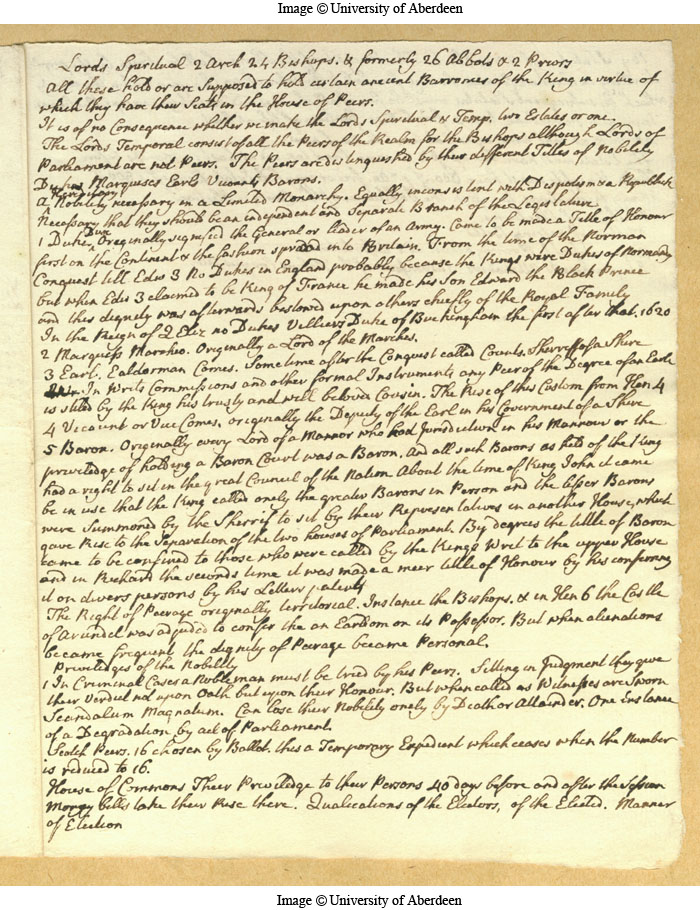 Image © University of Aberdeen
Lords Spiritual 2 Arch 24 Bishops. & formerly 26 Abbots & 2 Priors
All these hold or are Supposed to hold certain ancient Barronies of the King in virtue of
which they have their Seats in the House of Peers.
It is of no Consequence whether we make the Lords Spiritual & Temp. two Estates or one.
The Lords Temporal consist of all the Peers of the Realm for the Bishops although Lords of
Parliament are not Peers. The Peers are distinguished by their different Titles of Nobility
Dukes Marquises Earls Vicounts Barons.
A Hereditary Nobility necessary in a Limited Monarchy. Equally inconsistent with Despotism & a Republick
Necessary that they should be an independent and Separate Branch of the Legislature
1 Duke, Dux Originally signified the General or leader of an Army. Came to be made a Title of Honour
first on the Continent & the fashion spread into Britain. From the time of the Norman
Conquest till Edw 3 No Dukes in England probably because the Kings were Dukes of Normandy
but when Edw 3 claimed to be King of France he made his Son Edward the Black Prince
and this dignity was afterwards bestowed upon others chiefly of the Royal Family
In the Reign of Q Eliz no Dukes Villiers Duke of Buckingham the first after that. 1620
2 Marquess Marchio. Originally a Lord of the Marches.
3 Earl. Ealderman Comes. Sometime after the Conquest called Counts. Sherreffs of a Shire
In Writs Commissions and other formal Instruments any Peer of the Degree of an Earl
is stiled by the King his trusty and well beloved Cousin. The Rise of this Custom from Hen 4
4 Vicount or Vice Comes, originally the Deputy of the Earl in his Government of a Shire
5 Baron. Originally every Lord of a Mannor who had Jurisdiction in his Mannour or the
priviledge of holding a Baron Court was a Baron. And all such Barons as held of the King
had a right to sit in the great Council of the Nation About the time of King John it came
be in use that the King called onely the greater Barons in Person and the lesser Barons
were Summoned by the Sherrif to sit by their Representatives in another House, which
gave Rise to the Separation of the two houses of Parliament. By degrees the title of Baron
came to be confined to those who were called by the Kings Writ to the upper House
and in Richard the seconds time it was made a meer title of Honour by his conferring
it on divers persons by his Letters patents
The Right of Peerage originally territorial. Instance the Bishops. & in Hen 6 the Castle
of Arundel was adjudged to confer the an Earldom on its Possessor. But when alienations
became frequent the dignity of Peerage became Personal.
Priviledges of the Nobility
1 In Criminal Cases a Nobleman must be tried by his Peers. Sitting in Judgment they give
their Verdict not upon Oath but upon their Honour. But when called as Witnesses are Sworn
Scandalum Magnatum. Can lose their Nobility onely by Death or Attainder. One Instance
of a Degradation by act of Parliament.
Scotch Peers. 16 chosen by Ballot. this a Temporary Expedient which ceases when the Number
is reduced to 16.
House of Commons Their Priviledge to their Persons 40 days before and after the Session
Money bills take their Rise there. Qualications of the Electors, of the Elected. Manner
of Election
Image © University of Aberdeen